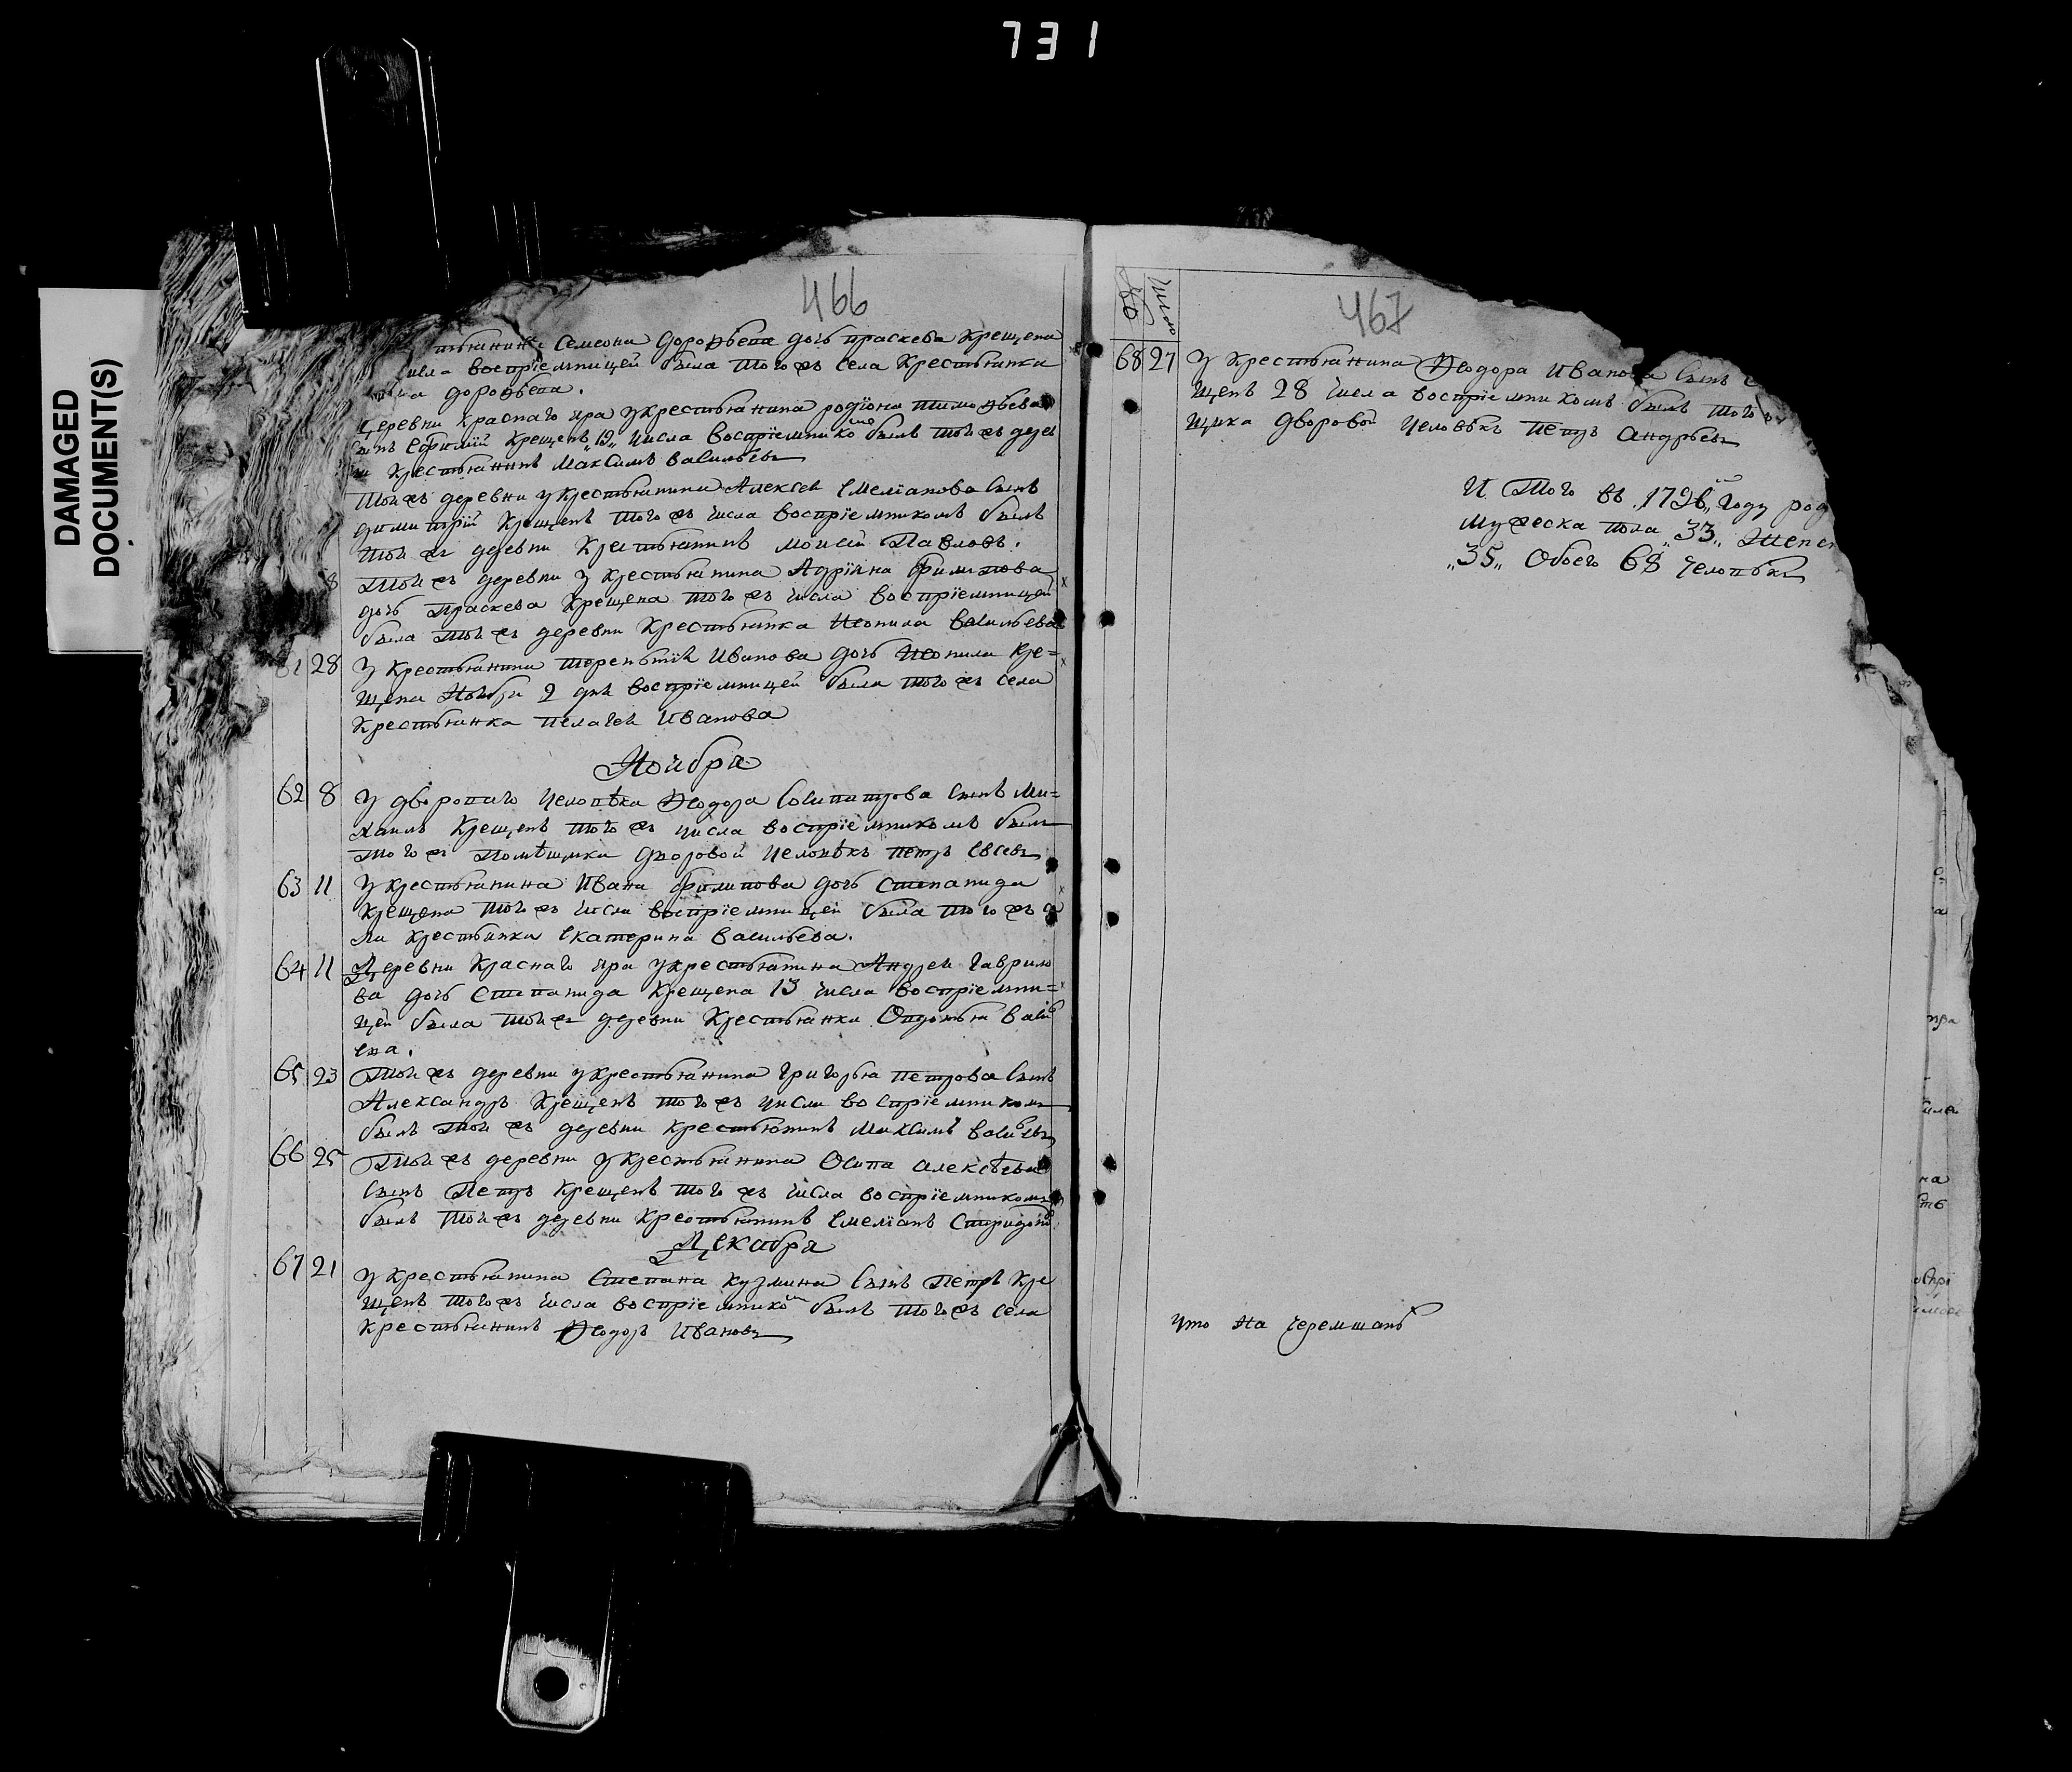 731
DAMAGED
DOCUMENT(S)
466
Семеона Дорофѣева дочь праскева крещена
числа воспріемницей была того жъ села крестьянка
Дорофѣева.
Деревни Краснаго Яра у крестьянина родіона тимофѣева
сынъ Ефимій крещенъ 19 числа воспріемникомъ былъ той жъ дерев
ни крестьянинъ Максимъ васильевъ
Той жъ деревни у крестьянина Алексея Емеліанова сынъ
димитрій крещенъ того жъ числа воспріемникомъ былъ
той жъ деревни крестьянинъ Моисей Павловъ.
8 Той жъ деревни у крестьянина Адріяна филипова
дочь Праскева крещена того жъ числа воспріемницей
была той жъ деревни крестьянка Неонила васильева
61 28 У крестьянина терентія Иванова дочь Неонила кре=
щена Ноября 2 дня воспріемницей была того жъ села
крестьянка пелагея Иванова
Ноября
62 8 У двороваго человѣка Ѳеодора Сосипатрова сынъ Ми=
хаилъ крещенъ того жъ числа воспріемникомъ былъ
того жъ помѣщика дворовой человѣкъ петръ Евсевъ
63 11 У крестьянина Ивана филипова дочь степанида
крещена того жъ числа воспріемницей была того жъ се
ла крестьянка екатерина васильева.
64 11 Деревни Краснаго Яра у крестьянина Андрея гаврило
ва дочь степанида крещена 13 числа воспріемни=
цей была той жъ деревни крестьянка Овдотья васил
ева.
65 23 Той жъ деревни у крестьянина григорья петрова сынъ
Александръ крещенъ того жъ числа воспріемникомъ
былъ той жъ деревни крестьянинъ Максимъ васильевъ
66 25 Той жъ деревни у крестьянина Осипа алексѣева
сынъ Петръ крещенъ того жъ числа воспріемникомъ
былъ той жъ деревни крестьянинъ Емеліанъ Спиридоно
Декабря
67 21 У крестьянина Степана кузмина сынъ Петръ кре
щенъ того жъ числа воспріемникомъ былъ того жъ села
крестьянинъ Ѳеодоръ Ивановъ
467
№ Число
68 27 У крестьянина Ѳеодора Иванова сынъ
щенъ 28 числа воспріемникомъ былъ того
щика дворовой человѣкъ петръ андрѣевъ
И того въ 1796 году род
мужеска пола „33„ Женск
„35„ Обоего 68 человѣкъ
что на черемшанѣ